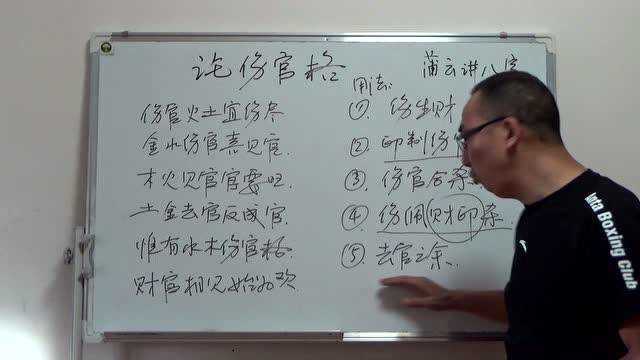 论伤官格
蒲云讲八字
用法:
伤官火土宜伤尽
金水伤官喜见官.
木火见官官要旺
土金去官反成官.
惟有水木伤官格.
财官相见始为欢
①. 伤生财
② 印制伤
③. 伤官合杀
④ 伤佩财印杀
⑤ 去官之余.
Boxing Club